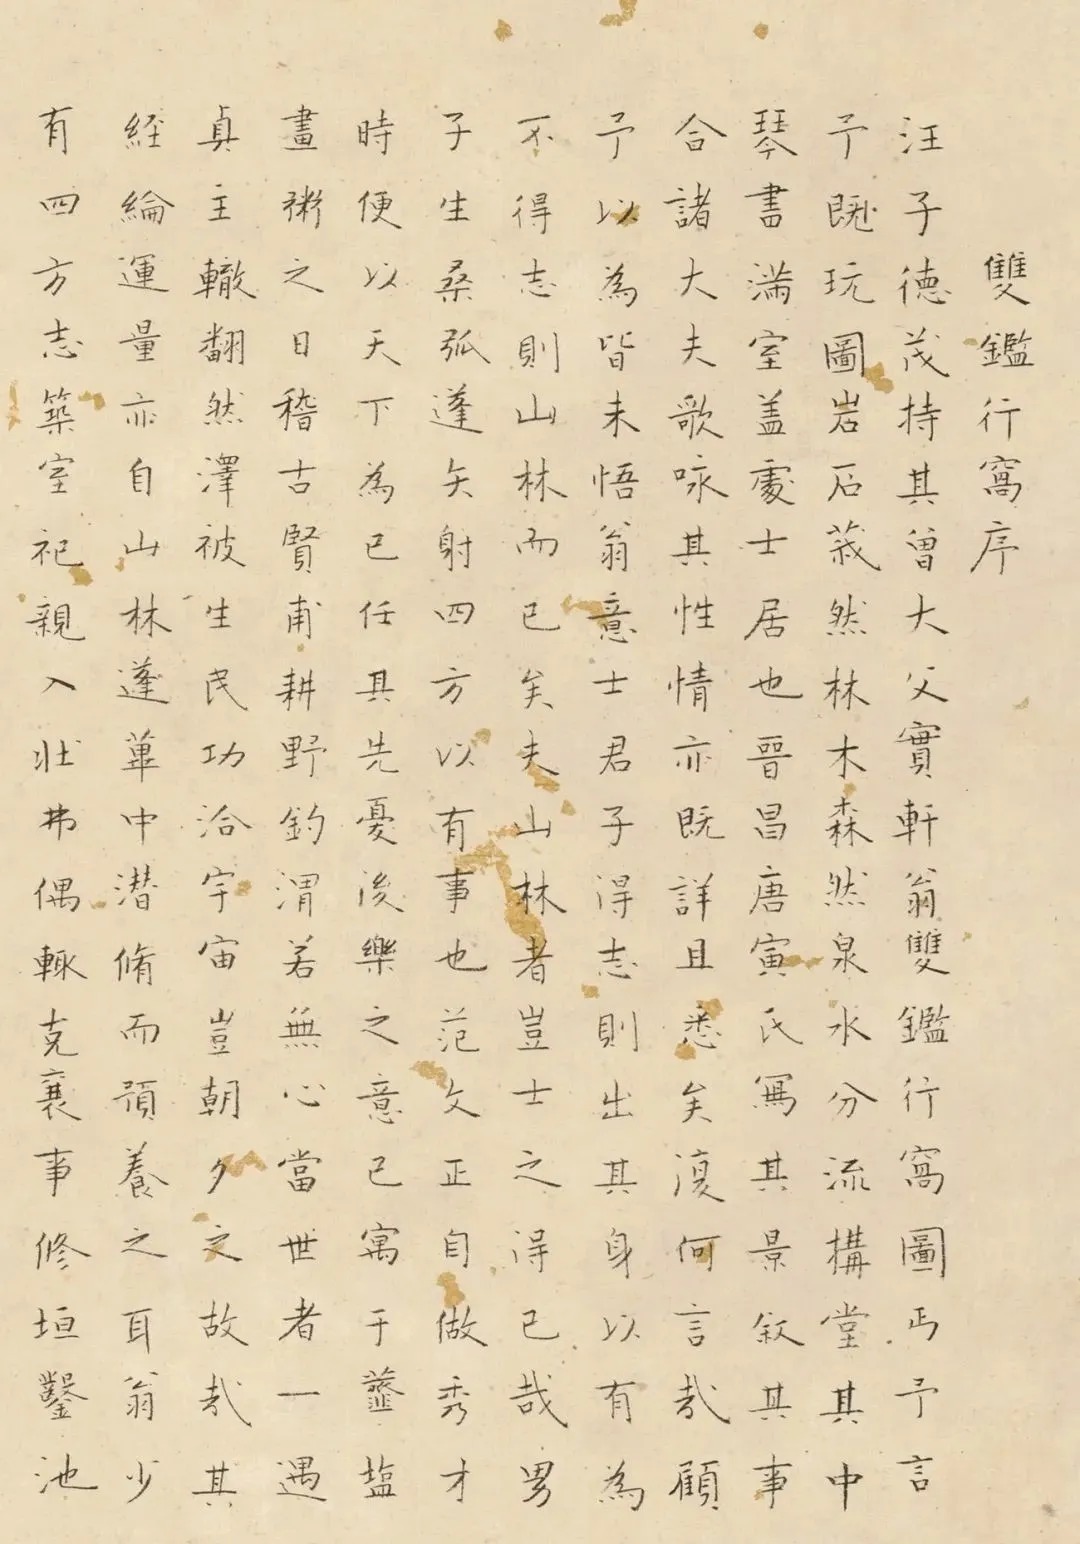 雙鑑行窩序
汪子德茂持其曾大父實軒翁雙鑑行窩圖丐予言
予既玩圖岩石莪然林木森然泉水分流構堂其中
琴書滿室盖處士居也晉昌唐寅氏寫其景敘其事
合諸大夫歌咏其性情亦既詳且悉矣復何言哉顧
予以為皆未悟翁意士君子得志則出其身以有為
不得志則山林而已矣夫山林者豈士之得已哉男
子生桑弧蓬矢射四方以有事也范文正自做秀才
時便以天下為己任其先憂後樂之意已寓于虀盐
畫粥之日稽古賢甫耕野釣渭若無心當世者一遇
真主轍翻然澤被生民功洽宇宙豈朝夕之故哉其
経綸運量亦自山林蓬蓽中潛脩而預養之耳翁少
有四方志築室祀親入壯弗偶輙克襄事修垣鑿池